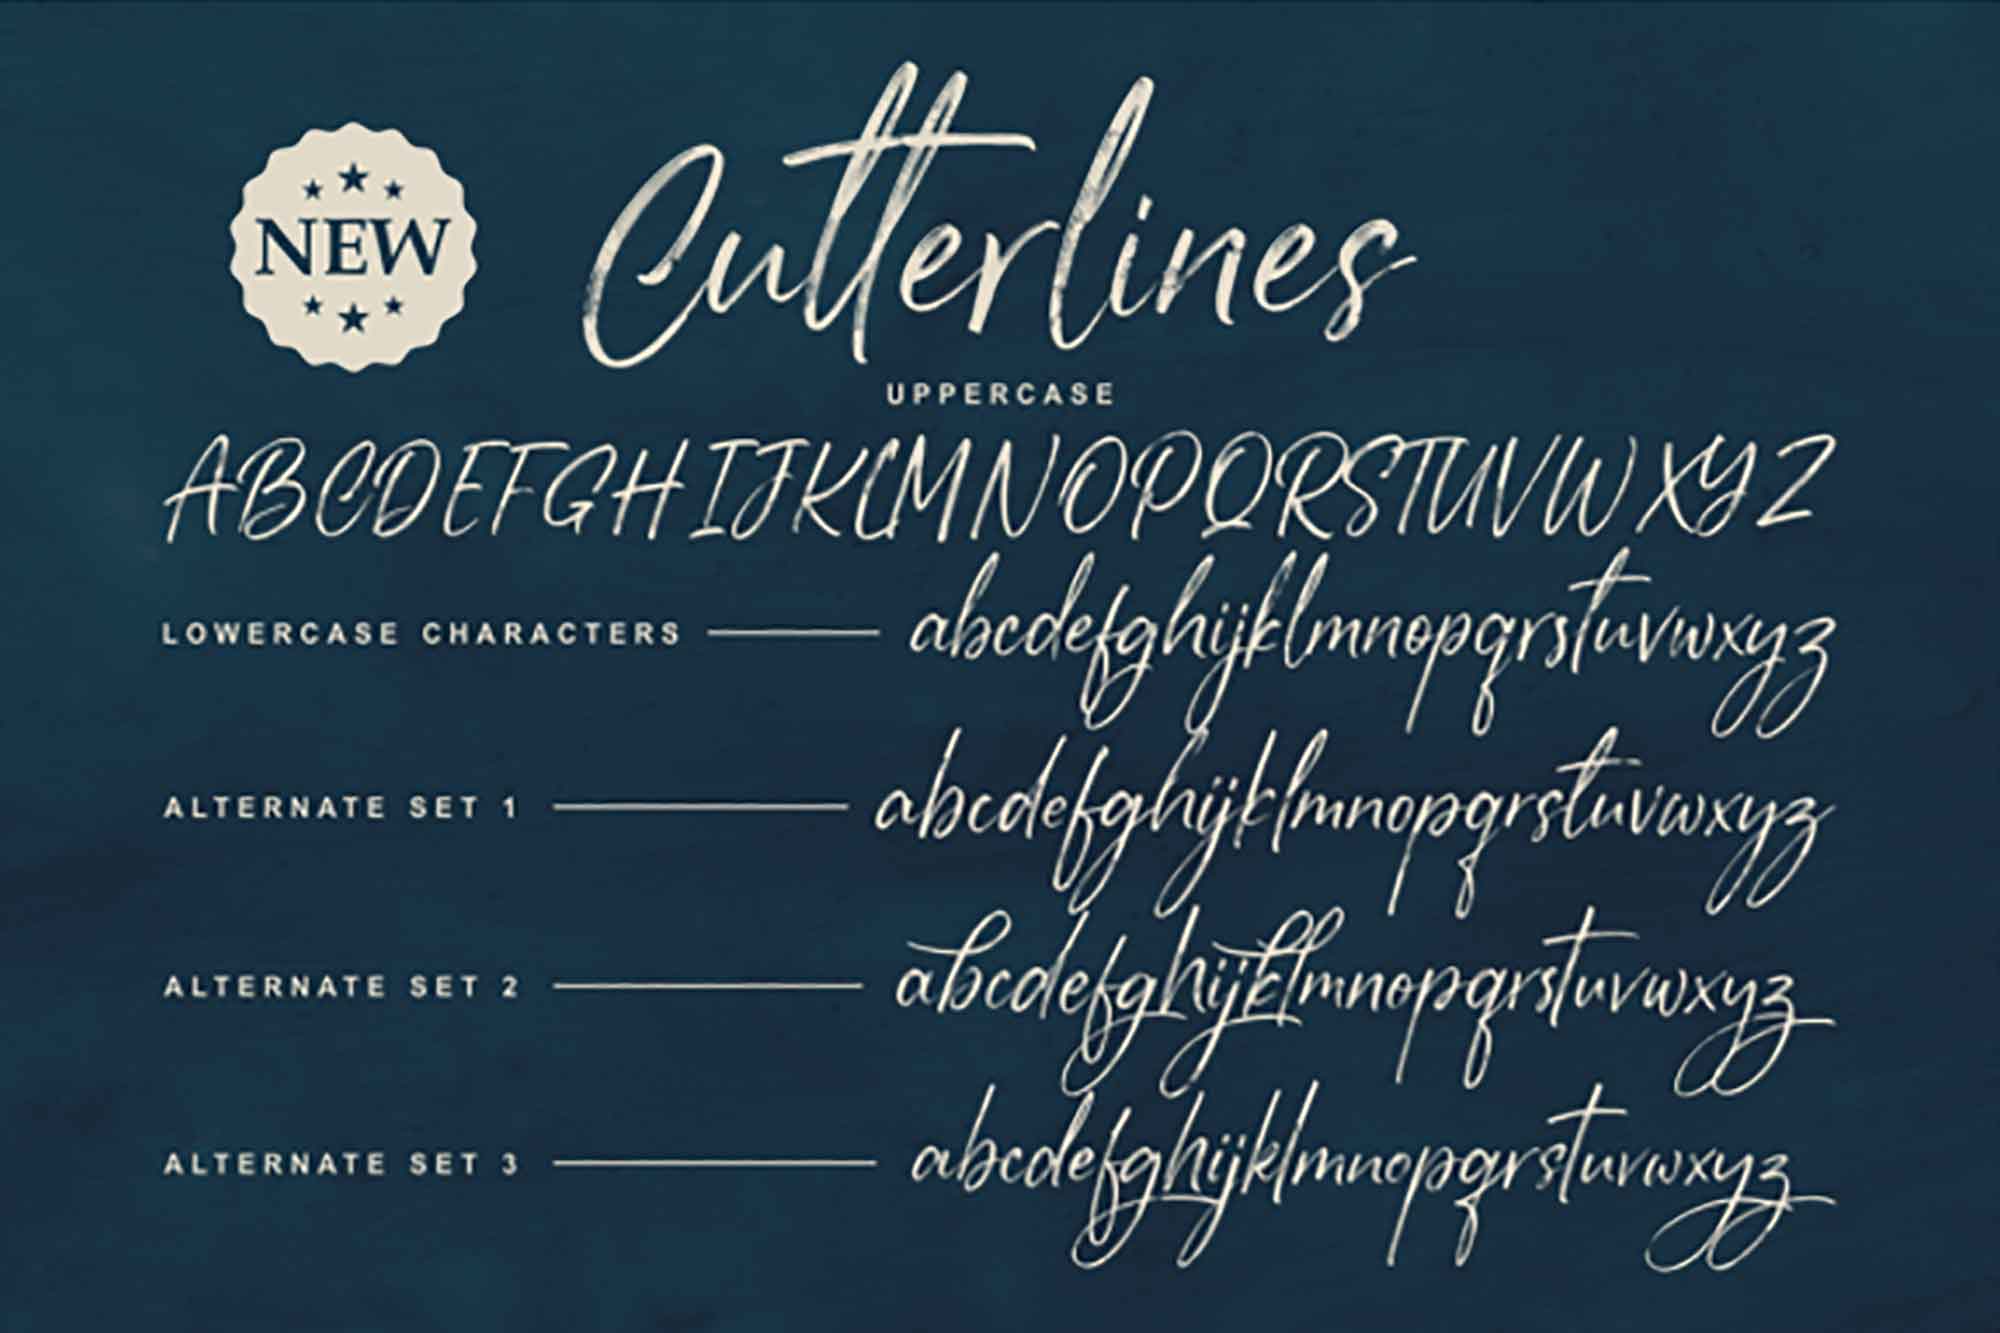 NEW
Cutterlines
UPPERCASE
ABCDEFGHIJKLMNOPQRSTUVWXYZ
LOWERCASE CHARACTERS abcdefghijklmnopqrstuvwxyz
ALTERNATE SET 1 abcdefghijklmnopqrstuvwxyz
ALTERNATE SET 2 abcdefghijklmnopqrstuvwxyz
ALTERNATE SET 3 abcdefghijklmnopqrstuvwxyz